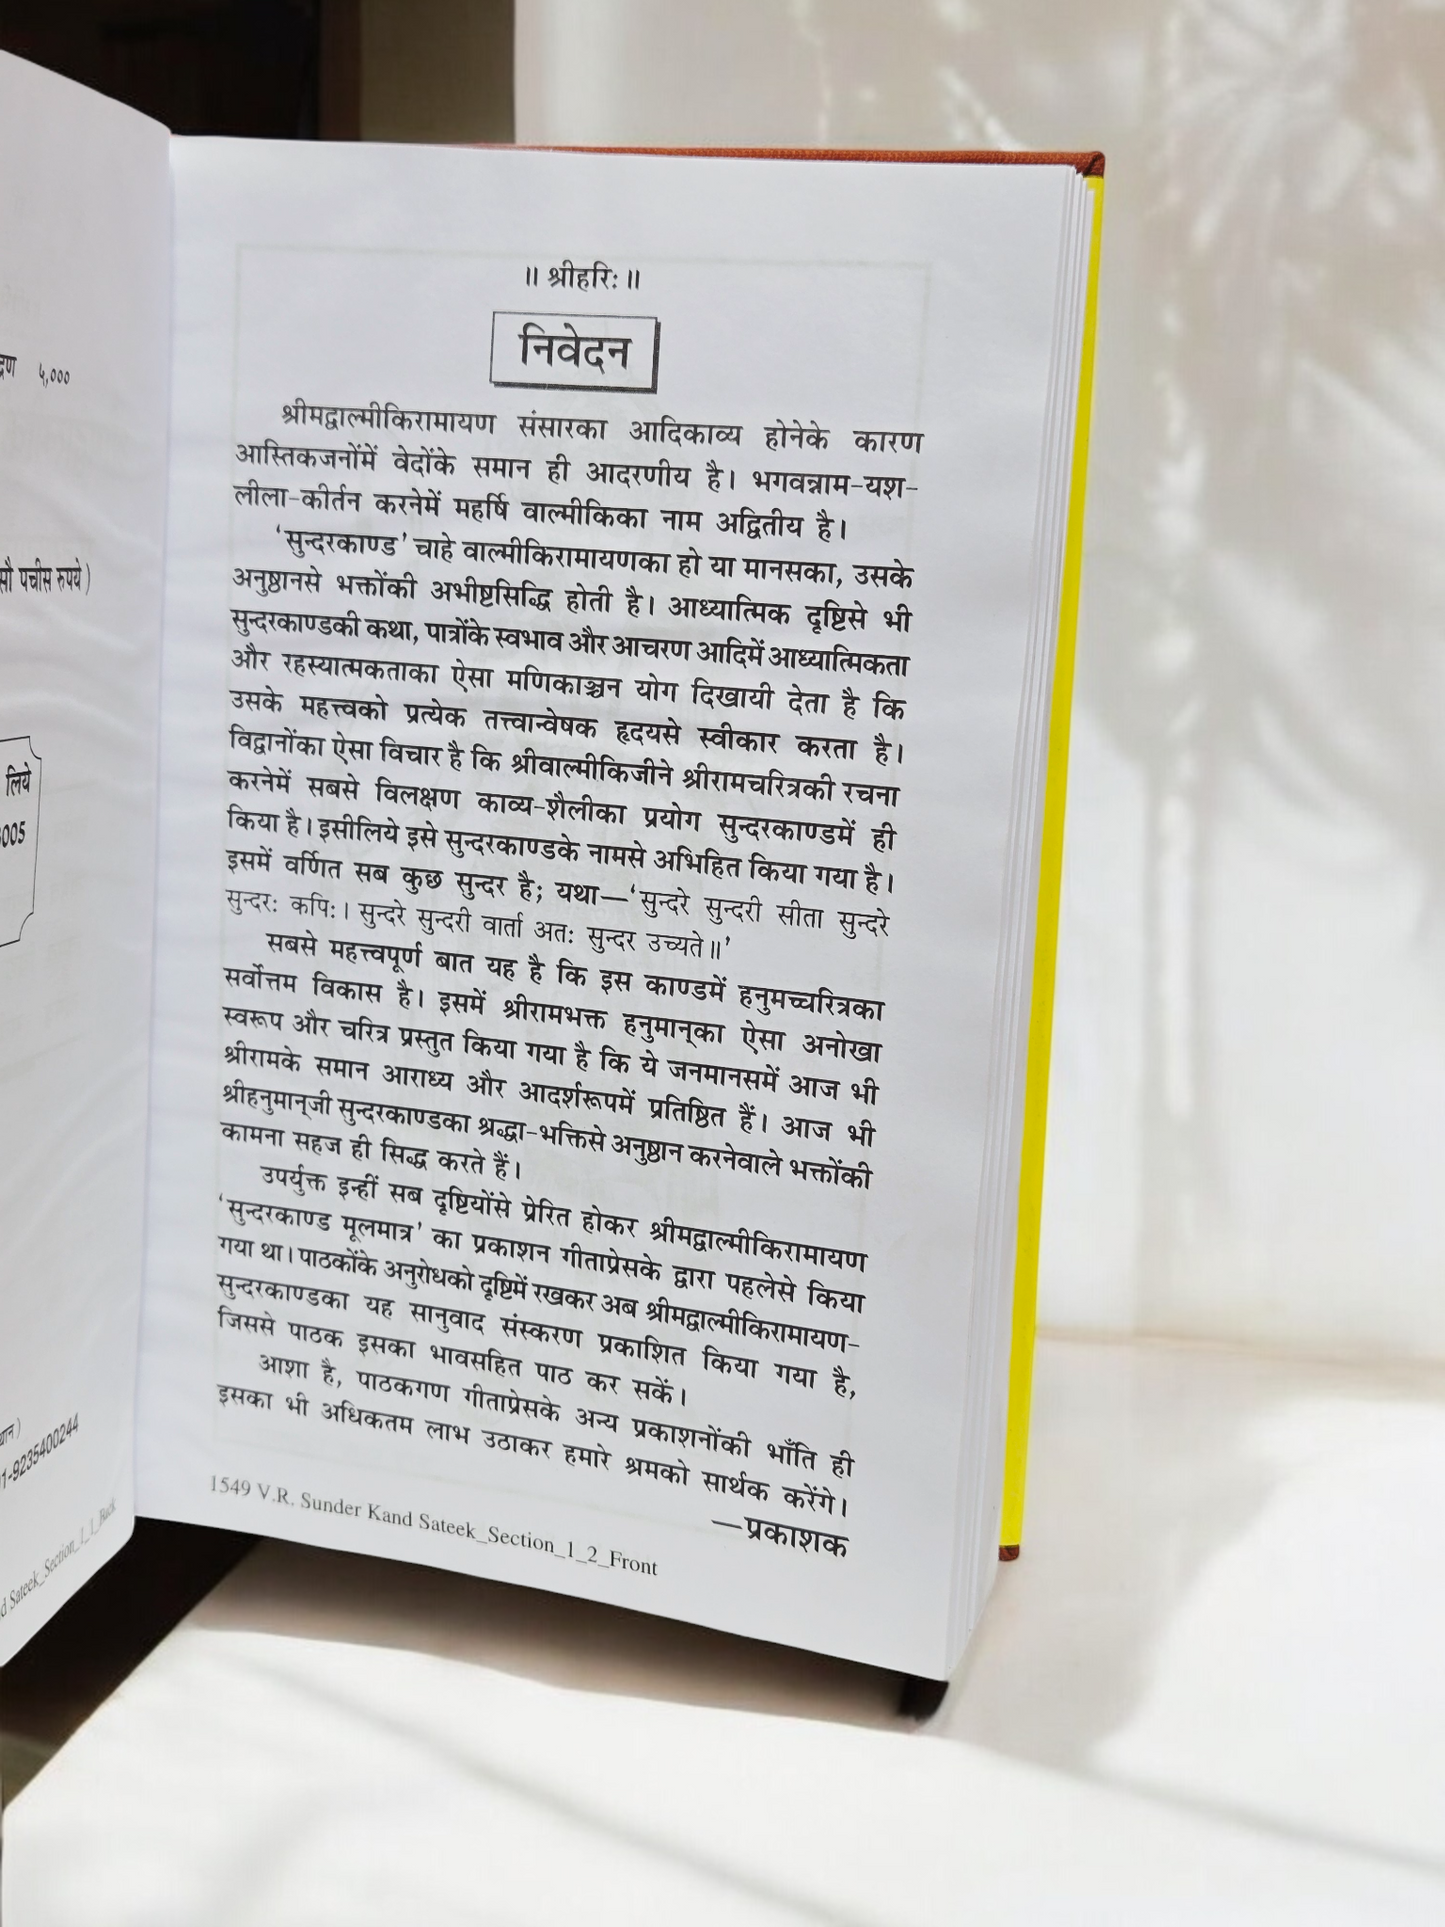 ५,०००
सौ पचीस रुपये)
लिये
005
1-9235400244
Sateek_Section_1_1_Back
॥ श्रीहरिः ॥
निवेदन
श्रीमद्वाल्मीकिरामायण संसारका आदिकाव्य होनेके कारण
आस्तिकजनोंमें वेदोंके समान ही आदरणीय है। भगवन्नाम-यश-
लीला-कीर्तन करनेमें महर्षि वाल्मीकिका नाम अद्वितीय है।
'सुन्दरकाण्ड' चाहे वाल्मीकिरामायणका हो या मानसका, उसके
अनुष्ठानसे भक्तोंकी अभीष्टसिद्धि होती है। आध्यात्मिक दृष्टिसे भी
सुन्दरकाण्डकी कथा, पात्रोंके स्वभाव और आचरण आदिमें आध्यात्मिकता
और रहस्यात्मकताका ऐसा मणिकाञ्चन योग दिखायी देता है कि
उसके महत्त्वको प्रत्येक तत्त्वान्वेषक हृदयसे स्वीकार करता है।
विद्वानोंका ऐसा विचार है कि श्रीवाल्मीकिजीने श्रीरामचरित्रकी रचना
करनेमें सबसे विलक्षण काव्य-शैलीका प्रयोग सुन्दरकाण्डमें ही
किया है। इसीलिये इसे सुन्दरकाण्डके नामसे अभिहित किया गया है।
इसमें वर्णित सब कुछ सुन्दर है; यथा—'सुन्दरे सुन्दरी सीता सुन्दरे
सुन्दरः कपिः। सुन्दरे सुन्दरी वार्ता अतः सुन्दर उच्यते॥'
सबसे महत्त्वपूर्ण बात यह है कि इस काण्डमें हनुमच्चरित्रका
सर्वोत्तम विकास है। इसमें श्रीरामभक्त हनुमान्‌का ऐसा अनोखा
स्वरूप और चरित्र प्रस्तुत किया गया है कि ये जनमानसमें आज भी
श्रीरामके समान आराध्य और आदर्शरूपमें प्रतिष्ठित हैं। आज भी
श्रीहनुमान्‌जी सुन्दरकाण्डका श्रद्धा-भक्तिसे अनुष्ठान करनेवाले भक्तोंकी
कामना सहज ही सिद्ध करते हैं।
उपर्युक्त इन्हीं सब दृष्टियोंसे प्रेरित होकर श्रीमद्वाल्मीकिरामायण
'सुन्दरकाण्ड मूलमात्र' का प्रकाशन गीताप्रेसके द्वारा पहलेसे किया
गया था। पाठकोंके अनुरोधको दृष्टिमें रखकर अब श्रीमद्वाल्मीकिरामायण-
सुन्दरकाण्डका यह सानुवाद संस्करण प्रकाशित किया गया है,
जिससे पाठक इसका भावसहित पाठ कर सकें।
आशा है, पाठकगण गीताप्रेसके अन्य प्रकाशनोंकी भाँति ही
इसका भी अधिकतम लाभ उठाकर हमारे श्रमको सार्थक करेंगे।
—प्रकाशक
1549 V.R. Sunder Kand Sateek_Section_1_2_Front